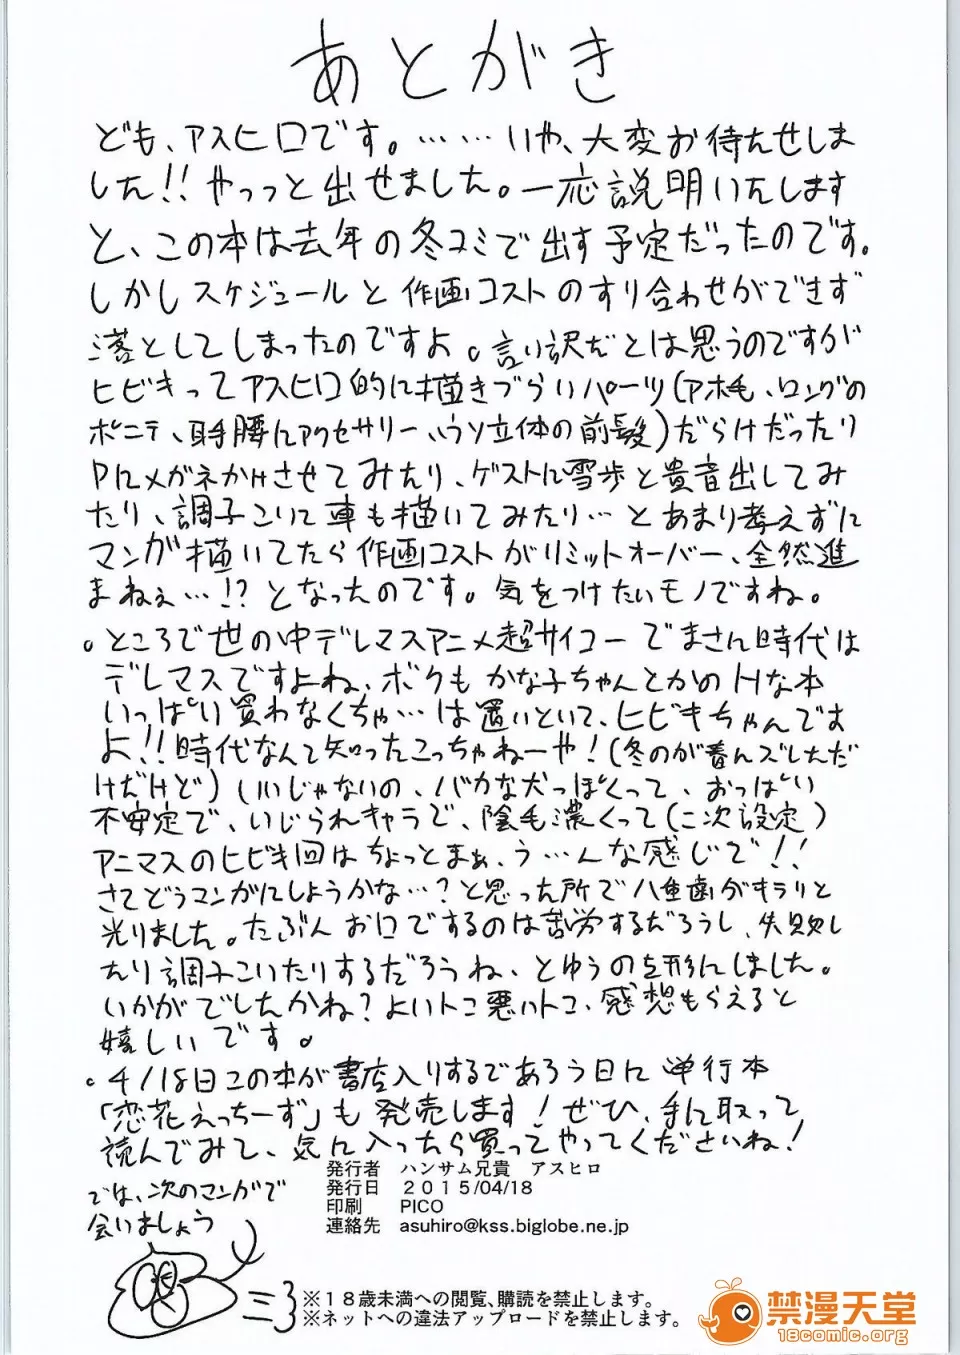 あとがき
ども、アスヒロです。……いや、大変お待たせしま
した!!やっっと出せました。一応説明いたします
と、この本は去年の冬コミで出す予定だったのです。
しかしスケジュールと作画コストのすり合わせができず
落としてしまったのですよ。言い訳だとは思うのですが
ヒビキってアスヒロ的に描きづらいパーツ(アホ毛、ロングの
ポニテ、耳手腰にアクセサリー、ウソ立体の前髪)だらけだったり
Pにメガネかけさせてみたり、ゲストに雪歩と貴音出してみ
たり、調子こいて車も描いてみたり…とあまり考えずに
マンガ描いてたら作画コストがリミットオーバー、全然進
まねぇ…!?となったのです。気をつけたいモノですね。
。ところで世の中デレマスアニメ超サイコーでまさに時代は
デレマスですよね、ボクもかな子ちゃんとかのHな本
いっぱい買わなくちゃ…は置いといて、ヒビキちゃんです
よ!!時代なんて知ったこっちゃねーや!(冬のが着んズしただ
けだけど)いいじゃないの、バカな犬っぽくって、おっぱい
不安定で、いじられキャラで、陰毛濃くって(二次設定)
アニマスのヒビキ回はちょっとまぁ、う…んな感じで!!
さてどうマンガにしようかな…?と思った所で八重歯がキラリと
光りました。たぶんお口でするのは苦労するだろうし、失敗し
たり調子こいたりするだろうね、とゆうのを形にしました。
いかがでしたかね?よいトコ悪いトコ、感想もらえると
嬉しいです。
。4/18日この本が書店入りするであろう日に単行本
「恋花えっちーず」も発売します!ぜひ、手に取って
読んでみて、気に入ったら買ってやってくださいね!
では、次のマンガで
会いましょう
発行者 ハンサム兄貴 アスヒロ
発行日 2015/04/18
印刷 PICO
連絡先 asuhiro@kss.biglobe.ne.jp
※18歳未満への閲覧、購読を禁止します。
※ネットへの違法アップロードを禁止します。
禁漫天堂
18comic.org